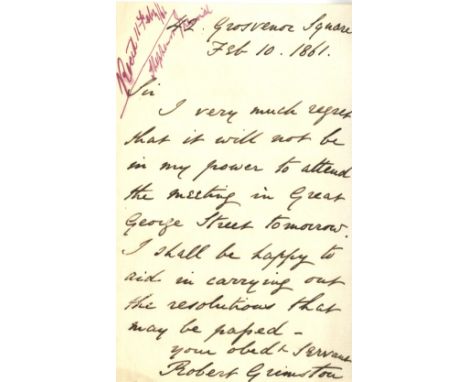 Recd 11 Feb/61
42. Grosvenor Square
Feb 10. 1861.
Sir
I very much regret
that it will not be
in my power to attend
the meeting in Great
George Street tomorrow.
I shall be happy to
aid in carrying out
the resolutions that
may be passed -
your obedt Servant
Robert Grimston